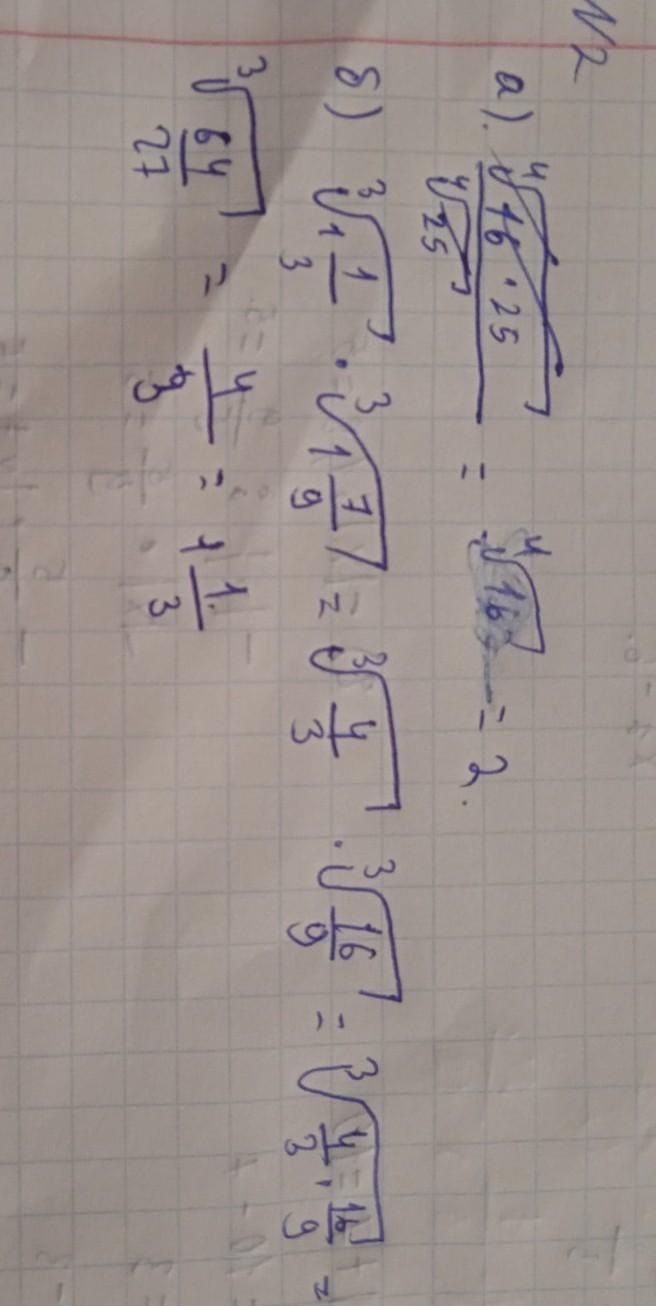 N2
а). ⁴√(16·25) / ⁴√25 = ⁴√16 = 2.
б) ³√(1 1/3) · ³√(1 7/9) = ³√(4/3) · ³√(16/9) = ³√(4/3 · 16/9) =
³√(64/27) = 4/3 = 1 1/3